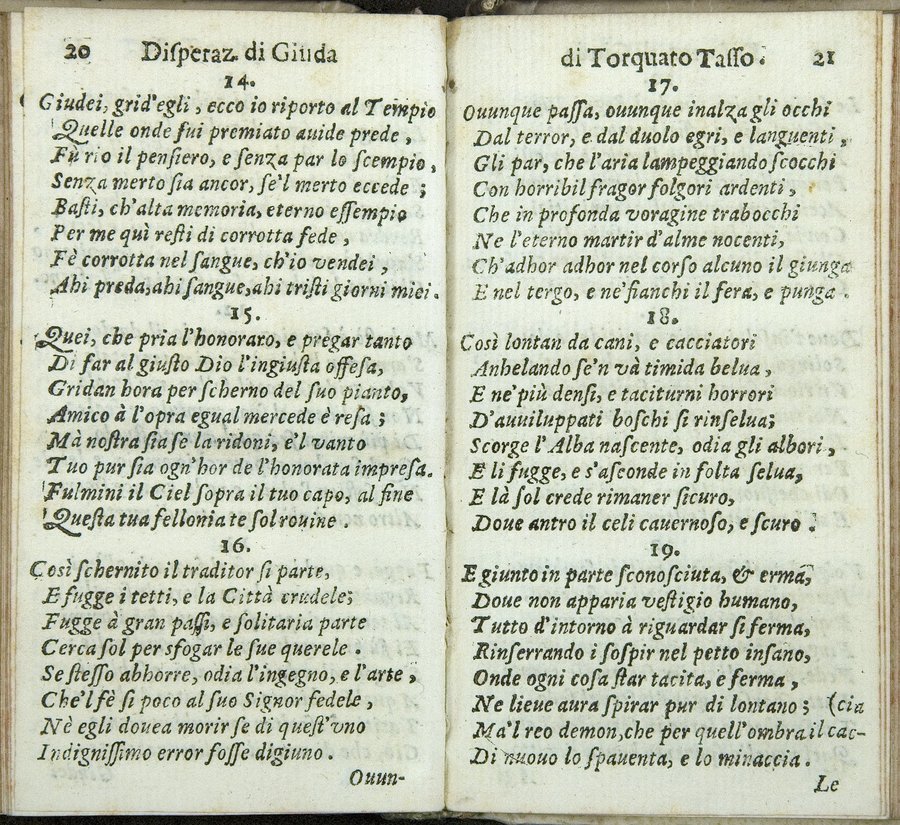 20 Disperaz. di Giuda
14.
Giudei, grid'egli, ecco io riporto al Tempio
Quelle onde fui premiato auide prede,
Fù rio il pensiero, e senza par lo scempio,
Senza merto sia ancor, se'l merto eccede;
Basti, ch'alta memoria, eterno essempio
Per me quì resti di corrotta fede,
Fè corrotta nel sangue, ch'io vendei,
Ahi preda, ahi sangue, ahi tristi giorni miei.
15.
Quei, che pria l'honoraro, e pregar tanto
Di far al giusto Dio l'ingiusta offesa,
Gridan hora per scherno del suo pianto,
Amico à l'opra egual mercede è resa;
Mà nostra sia se la ridoni, e'l vanto
Tuo pur sia ogn'hor de l'honorata impresa.
Fulmini il Ciel sopra il tuo capo, al fine
Questa tua fellonia te sol rouine.
16.
Così schernito il traditor si parte,
E fugge i tetti, e la Città crudele;
Fugge à gran passi, e solitaria parte
Cerca sol per sfogar le sue querele.
Se stesso abhorre, odia l'ingegno, e l'arte,
Che'l fè si poco al suo Signor fedele,
Nè egli douea morir se di quest'vno
Indignissimo error fosse digiuno.
Ouun-
di Torquato Tasso. 21
17.
Ouunque passa, ouunque inalza gli occhi
Dal terror, e dal duolo egri, e languenti,
Gli par, che l'aria lampeggiando scocchi
Con horribil fragor folgori ardenti,
Che in profonda voragine trabocchi
Ne l'eterno martir d'alme nocenti,
Ch'adhor adhor nel corso alcuno il giunga
E nel tergo, e ne'fianchi il fera, e punga.
18.
Così lontan da cani, e cacciatori
Anhelando se'n và timida belua,
E ne'più densi, e taciturni horrori
D'auuiluppati boschi si rinselua;
Scorge l'Alba nascente, odia gli albori,
E li fugge, e s'asconde in folta selua,
E là sol crede rimaner sicuro,
Doue antro il celi cauernoso, e scuro.
19.
E giunto in parte sconosciuta, & erma,
Doue non apparia vestigio humano,
Tutto d'intorno à riguardar si ferma,
Rinserrando i sospir nel petto insano,
Onde ogni cosa star tacita, e ferma,
Ne lieue aura spirar pur di lontano; (cia
Ma'l reo demon, che per quell'ombra il cac-
Di nuouo lo spauenta, e lo minaccia.
Le